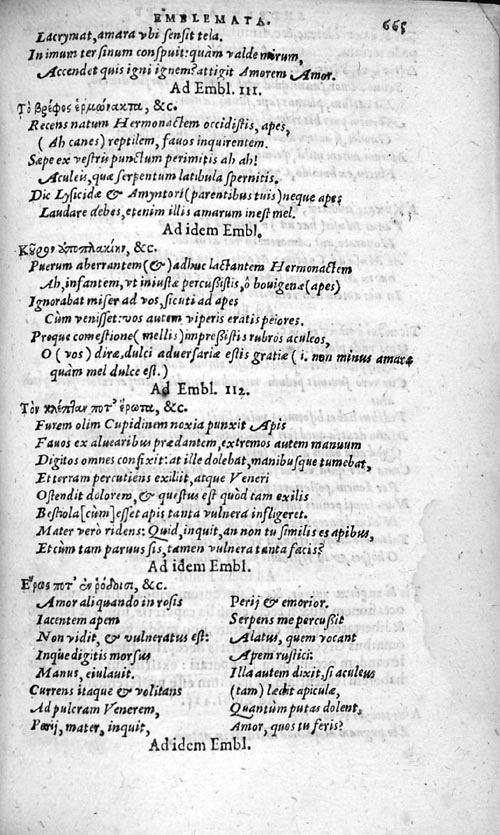 EMBLEMATA. 665
Lacrymat, amara vbi sensit tela.
In imum ter sinum conspuit: quàm valde mirum,
Accendet quis igni ignem? attigit Amorem Amor.
Ad Embl. 111.
Τὸ βρέφος ἑρμώνακτα, &c.
Recens natum Hermonactem occidistis, apes,
(Ah canes) reptilem, fauos inquirentem.
Sæpe ex vestris punctum perimitis ah ah!
Aculeis, quæ serpentum latibula spernitis.
Dic Lysicidæ & Amyntori (parentibus tuis) neque apes
Laudare debes, etenim illis amarum inest mel.
Ad idem Embl.
Κοῦρον &c.
Puerum aberrantem (&) adhuc lactantem Hermonactem
Ah, infantem, vt iniustæ percußistis, ô bouigenæ (apes)
Ignorabat miser ad vos, sicuti ad apes
Cùm venisset: vos autem viperis eratis peiores.
Proque comestione (mellis) impreßistis rubros aculeos,
O (vos) diræ, dulci aduersariæ estis gratiæ (i. non minus amaræ
quàm mel dulce est.)
Ad Embl. 112.
Τὸν κλέπταν ποτ' ἔρωτα, &c.
Furem olim Cupidinem noxia punxit Apis
Fauos ex aluearibus prædantem, extremos autem manuum
Digitos omnes confixit: at ille dolebat, manibusque tumebat,
Et terram percutiens exiliit, atque Veneri
Ostendit dolorem, & questus est quòd tam exilis
Bestiola [cùm] esset apis tanta vulnera infligeret.
Mater verò ridens: Quid, inquit, an non tu similis es apibus,
Et cùm tam paruus sis, tamen vulnera tanta facis?
Ad idem Embl.
Ερως ποτ' ἐν ῥόδοισι, &c.
Amor aliquando in rosis
Iacentem apem
Non vidit, & vulneratus est:
Inque digitis morsus
Manus, eiulauit.
Currens itaque & volitans
Ad pulcram Venerem,
Perij, mater, inquit,
Perij & emorior.
Serpens me percußit
Alatus, quem vocant
Apem rustici.
Illa autem dixit, si aculeus
(tam) lædit apiculæ,
Quantùm putas dolent,
Amor, quos tu feris?
Ad idem Embl.